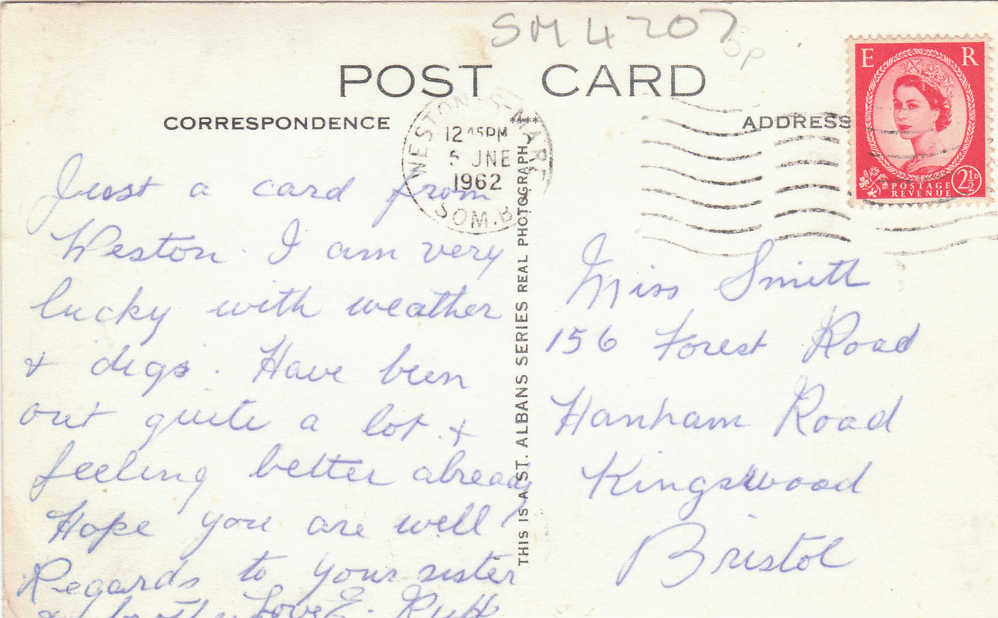 SM 4207
5p
POST CARD
CORRESPONDENCE
ADDRESS
WESTON-S-MARE
12 45PM
5 JNE
1962
SOM. B
E R
POSTAGE
REVENUE
2½D
THIS IS A ST. ALBANS SERIES REAL PHOTOGRAPH
Just a card from
Weston. I am very
lucky with weather
& digs. Have been
out quite a lot &
feeling better already
Hope you are well
Regards to your sister
& Love E.
Miss Smith
156 Forest Road
Hanham Road
Kingswood
Bristol